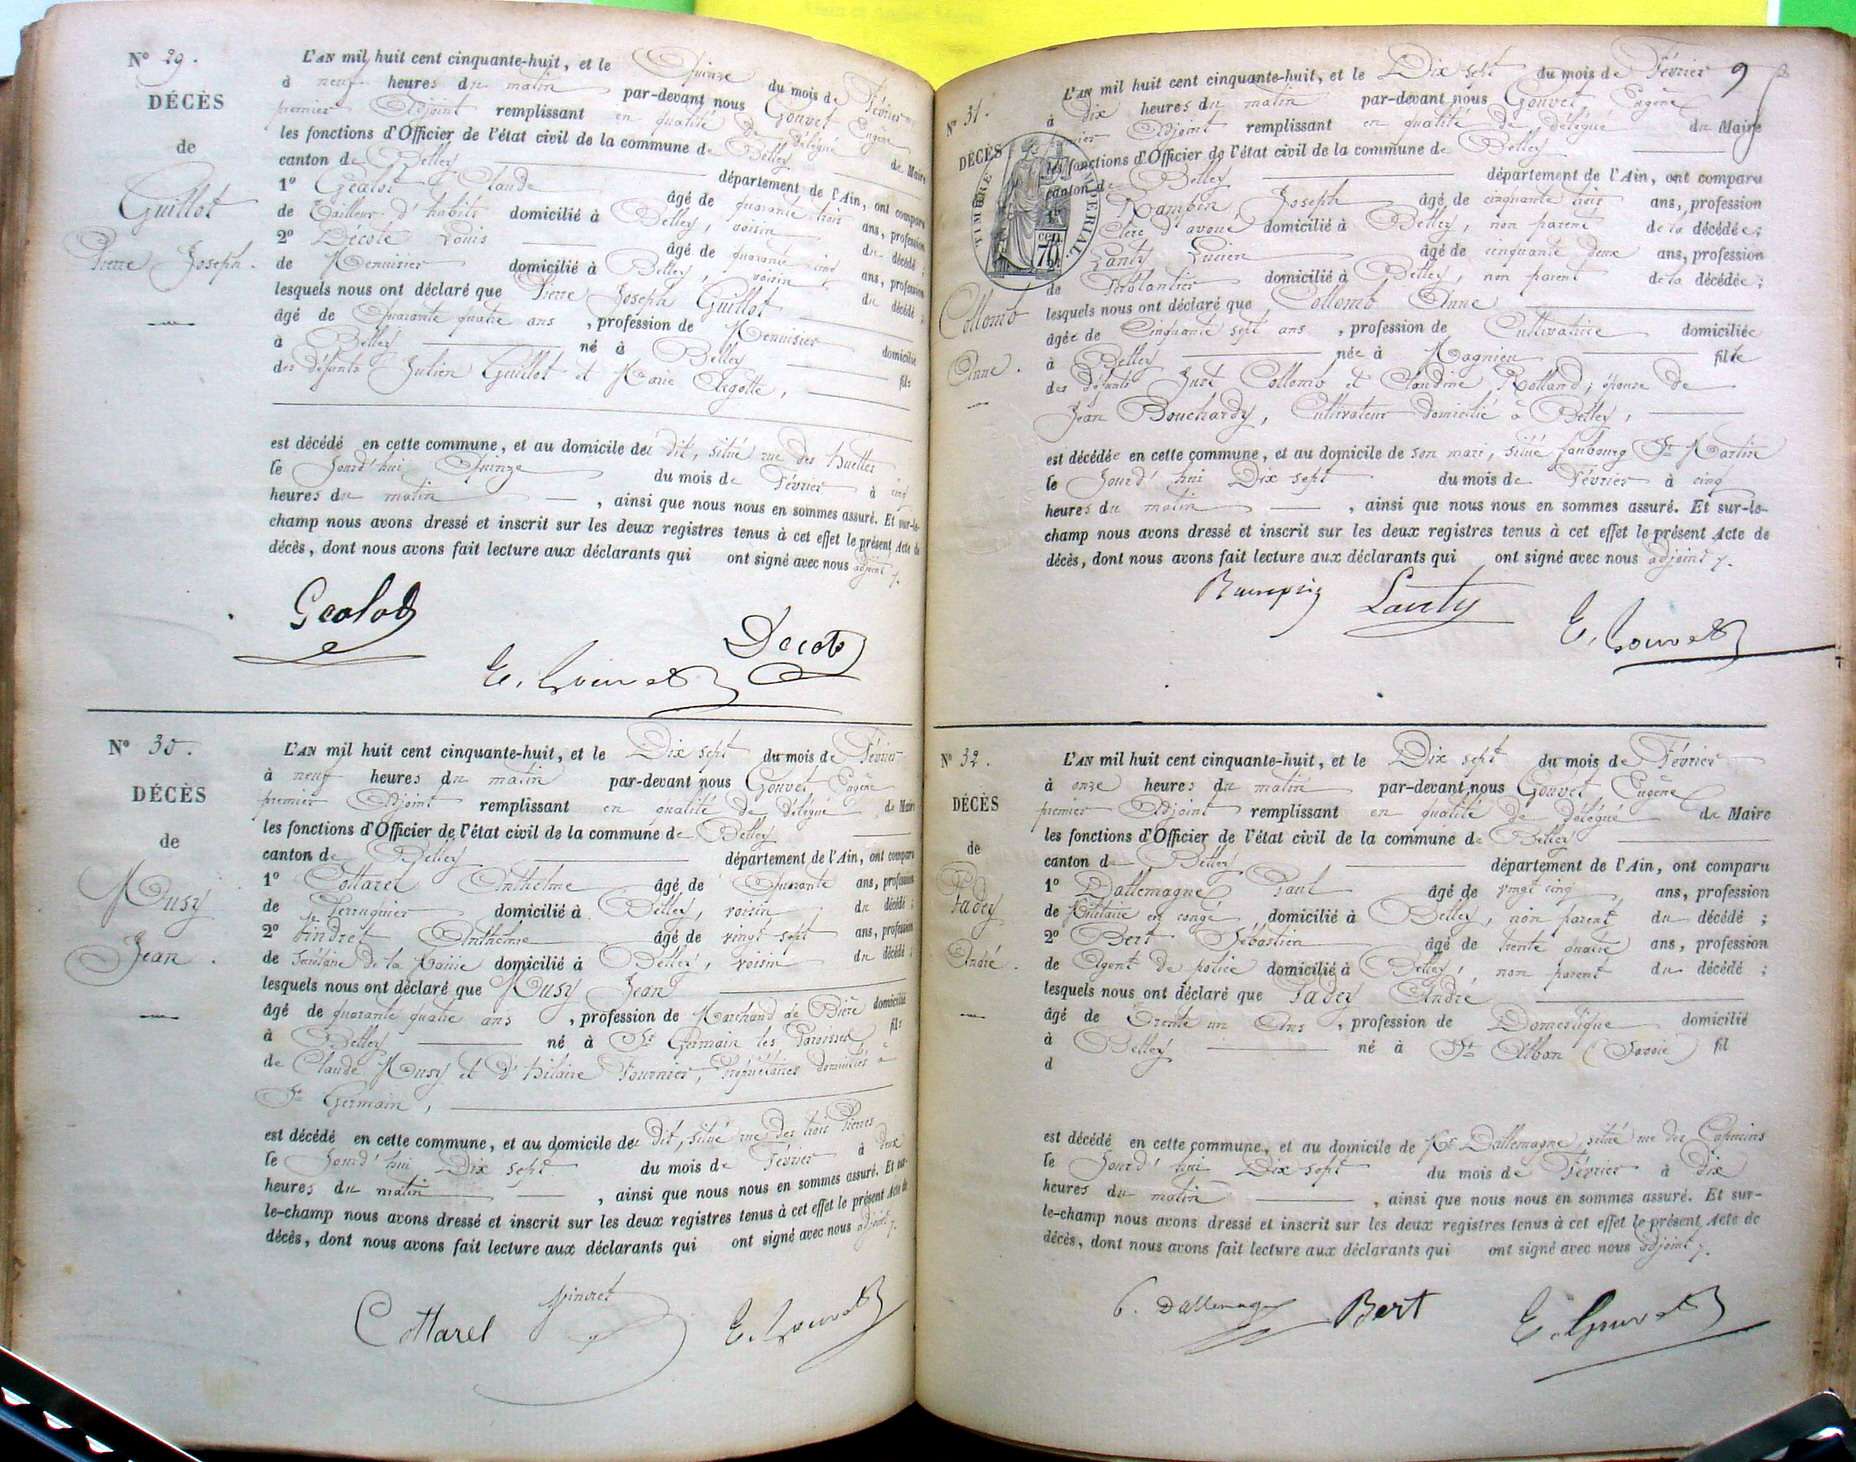 N° 29.
DÉCÈS
de
Guillot
Pierre Joseph.
L'AN mil huit cent cinquante-huit, et le Quinze du mois de Février
à neuf heures du matin par-devant nous Gouvet Eugène
premier Adjoint remplissant en qualité de délégué du Maire
les fonctions d'Officier de l'état civil de la commune de Belley
canton de Belley département de l'Ain, ont comparu
1° Claude âgé de quarante trois ans, profession
de Tailleur d'habits domicilié à Belley, voisin du décédé ;
2° Décote Louis âgé de quarante cinq ans, profession
de Menuisier domicilié à Belley, voisin du décédé ;
lesquels nous ont déclaré que Pierre Joseph Guillot
âgé de Quarante quatre ans , profession de Menuisier domicilié
à Belley né à Belley fils
des défunts Julien Guillot et Marie
est décédé en cette commune, et au domicile du dit, situé rue des
le Jourd'hui Quinze du mois de Février à cinq
heures du matin , ainsi que nous nous en sommes assuré. Et sur-le-
champ nous avons dressé et inscrit sur les deux registres tenus à cet effet le présent Acte de
décès, dont nous avons fait lecture aux déclarants qui ont signé avec nous adjoint
Decote
E. Gouvet
N° 30.
DÉCÈS
de
Musy
Jean.
L'AN mil huit cent cinquante-huit, et le Dix sept du mois de Février
à neuf heures du matin par-devant nous Gouvet Eugène
premier Adjoint remplissant en qualité de délégué du Maire
les fonctions d'Officier de l'état civil de la commune de Belley
canton de Belley département de l'Ain, ont comparu
1° Cottarel Anthelme âgé de Quarante ans, profession
de Perruquier domicilié à Belley, voisin du décédé ;
2° Vindret Anthelme âgé de vingt sept ans, profession
de de la Mairie domicilié à Belley, voisin du décédé ;
lesquels nous ont déclaré que Musy Jean
âgé de quarante quatre ans , profession de Marchand de Bière domicilié
à Belley né à St Germain les Paroisses, fils
de Claude Musy et d'hilaire Fournier, Propriétaires domiciliés à
St Germain,
est décédé en cette commune, et au domicile du dit, situé rue des trois Pierres
le Jourd'hui Dix sept du mois de Février à deux
heures du matin , ainsi que nous nous en sommes assuré. Et sur-
le-champ nous avons dressé et inscrit sur les deux registres tenus à cet effet le présent Acte de
décès, dont nous avons fait lecture aux déclarants qui ont signé avec nous adjoint
Cottarel Vindret E. Gouvet
9
N° 31.
DÉCÈS
TIMBRE IMPÉRIAL
Collomb
Anne.
L'AN mil huit cent cinquante-huit, et le Dix sept du mois de Février
à dix heures du matin par-devant nous Gouvet Eugène
Adjoint remplissant en qualité de délégué du Maire
les fonctions d'Officier de l'état civil de la commune de Belley
canton de Belley département de l'Ain, ont comparu
1° Rampin Joseph âgé de cinquante trois ans, profession
Clerc d'avoué domicilié à Belley, non parent de la décédée ;
Lanty Lucien âgé de cinquante deux ans, profession
de domicilié à Belley, non parent de la décédée ;
lesquels nous ont déclaré que Collomb Anne
âgée de Cinquante sept ans , profession de Cultivatrice domiciliée
à Belley née à Magnieu fille
des défunts Just Collomb et Claudine Rolland, épouse de
Jean Bouchardy, Cultivateur domicilié à Belley,
est décédée en cette commune, et au domicile de son mari, situé faubourg St Martin
le Jourd'hui Dix sept du mois de Février à cinq
heures du matin , ainsi que nous nous en sommes assuré. Et sur-le-
champ nous avons dressé et inscrit sur les deux registres tenus à cet effet le présent Acte de
décès, dont nous avons fait lecture aux déclarants qui ont signé avec nous adjoint
Rampin Lanty E. Gouvet
N° 32.
DÉCÈS
de
Padey
André.
L'AN mil huit cent cinquante-huit, et le Dix sept du mois de Février
à onze heures du matin par-devant nous Gouvet Eugène
premier Adjoint remplissant en qualité de délégué du Maire
les fonctions d'Officier de l'état civil de la commune de Belley
canton de Belley département de l'Ain, ont comparu
1° Dallemagne Paul âgé de vingt cinq ans, profession
de Militaire en congé domicilié à Belley, non parent du décédé ;
2° Bert Sébastien âgé de trente quatre ans, profession
de Agent de police domicilié à Belley, non parent du décédé ;
lesquels nous ont déclaré que Padey André
âgé de Trente un Ans , profession de Domestique domicilié
à Belley né à St Alban (Savoie) fil
d
est décédé en cette commune, et au domicile de Mr Dallemagne, situé rue des Capucins
le Jourd'hui Dix sept du mois de Février à dix
heures du matin , ainsi que nous nous en sommes assuré. Et sur-
le-champ nous avons dressé et inscrit sur les deux registres tenus à cet effet le présent Acte de
décès, dont nous avons fait lecture aux déclarants qui ont signé avec nous adjoint
Dallemagne Bert E. Gouvet